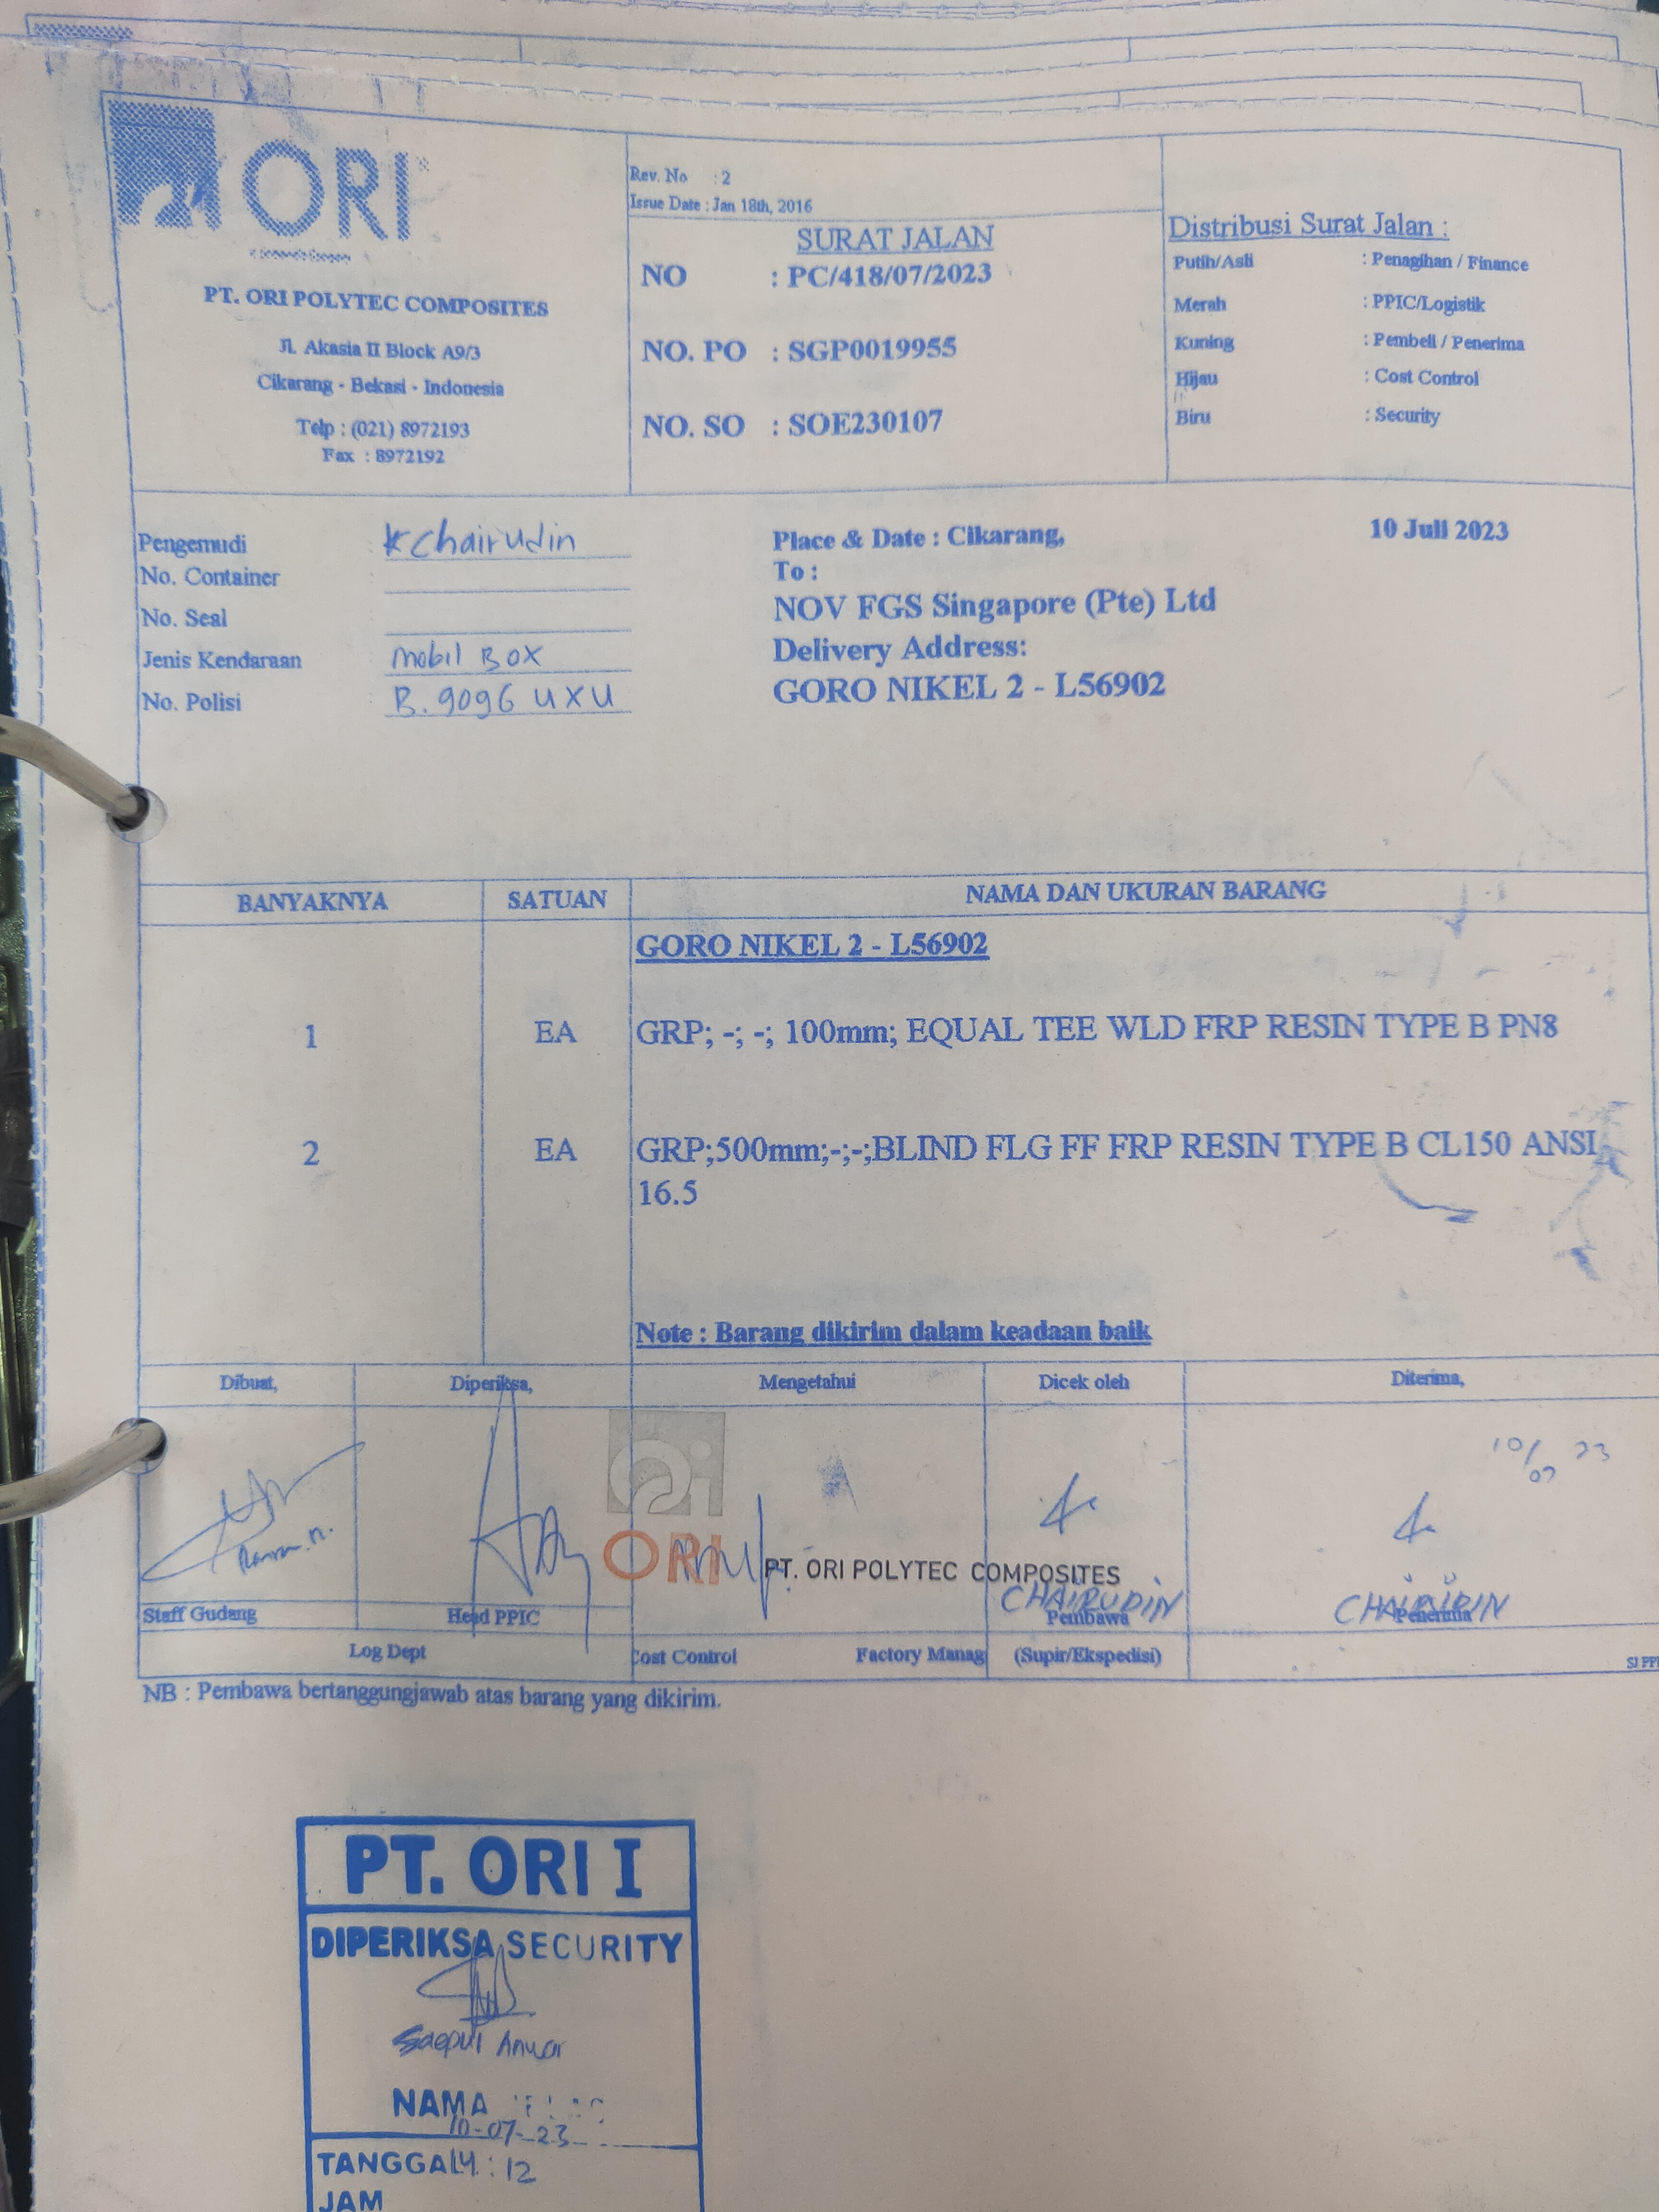 ORI
PT. ORI POLYTEC COMPOSITES
Jl. Akasia II Block A9/3
Cikarang - Bekasi - Indonesia
Telp : (021) 8972193
Fax : 8972192
Rev. No : 2
Issue Date : Jan 18th, 2016
SURAT JALAN
NO : PC/418/07/2023
NO. PO : SGP0019955
NO. SO : SOE230107
Distribusi Surat Jalan :
Putih/Asli : Penagihan / Finance
Merah : PPIC/Logistik
Kuning : Pembeli / Penerima
Hijau : Cost Control
Biru : Security
Pengemudi : Chairudin
No. Container
No. Seal
Jenis Kendaraan mobil BOX
No. Polisi B. 9096 UXU
Place & Date : Cikarang, 10 Juli 2023
To :
NOV FGS Singapore (Pte) Ltd
Delivery Address:
GORO NIKEL 2 - L56902
BANYAKNYA SATUAN NAMA DAN UKURAN BARANG
GORO NIKEL 2 - L56902
1 EA GRP; -; -; 100mm; EQUAL TEE WLD FRP RESIN TYPE B PN8
2 EA GRP;500mm;-;-;BLIND FLG FF FRP RESIN TYPE B CL150 ANSI
16.5
Note : Barang dikirim dalam keadaan baik
Dibuat, Diperiksa, Mengetahui Dicek oleh Diterima,
10/07 23
ORI PT. ORI POLYTEC COMPOSITES
CHAIRUDIN CHAIRUDIN
Staff Gudang Head PPIC Pembawa Penerima
Log Dept Cost Control Factory Manag (Supir/Ekspedisi)
SJ PP
NB : Pembawa bertanggungjawab atas barang yang dikirim.
PT. ORI I
DIPERIKSA SECURITY
Saepul Anwar
NAMA
10-07-23
TANGGAL 14:12
JAM